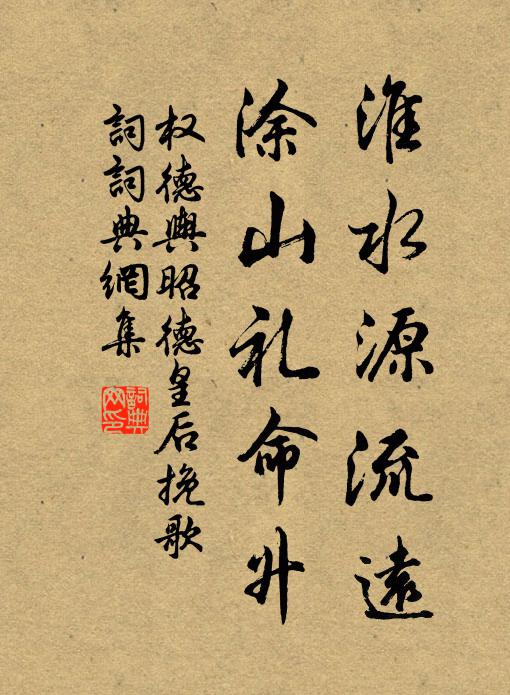 淮水源流遠
涂山礼命升
权德輿昭德皇后挽歌
詞詞典網集
詞典
网印